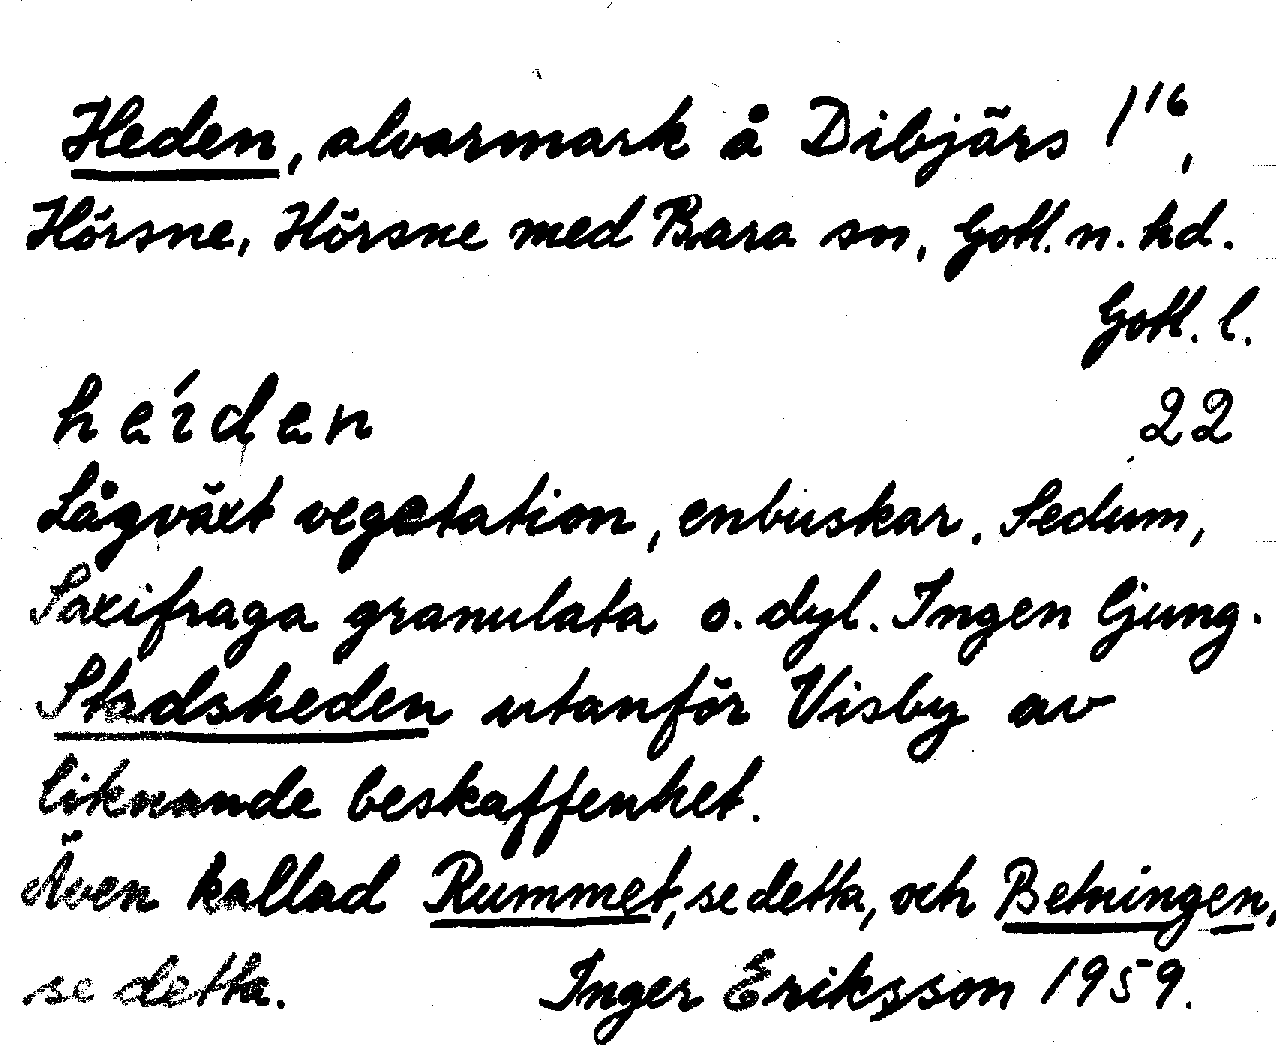 Heden, alvarmark å Dibjärs 1¹⁶,
Hörsne, Hörsne med Bara sn, Gotl. n. hd.
Gotl. l.
heíden 22
Lågväxt vegetation, enbuskar. Sedum,
Saxifraga granulata o. dyl. Ingen ljung.
Stadsheden utanför Visby av
liknande beskaffenhet.
Även kallad Rummet, se detta, och Betningen,
se detta. Inger Eriksson 1959.